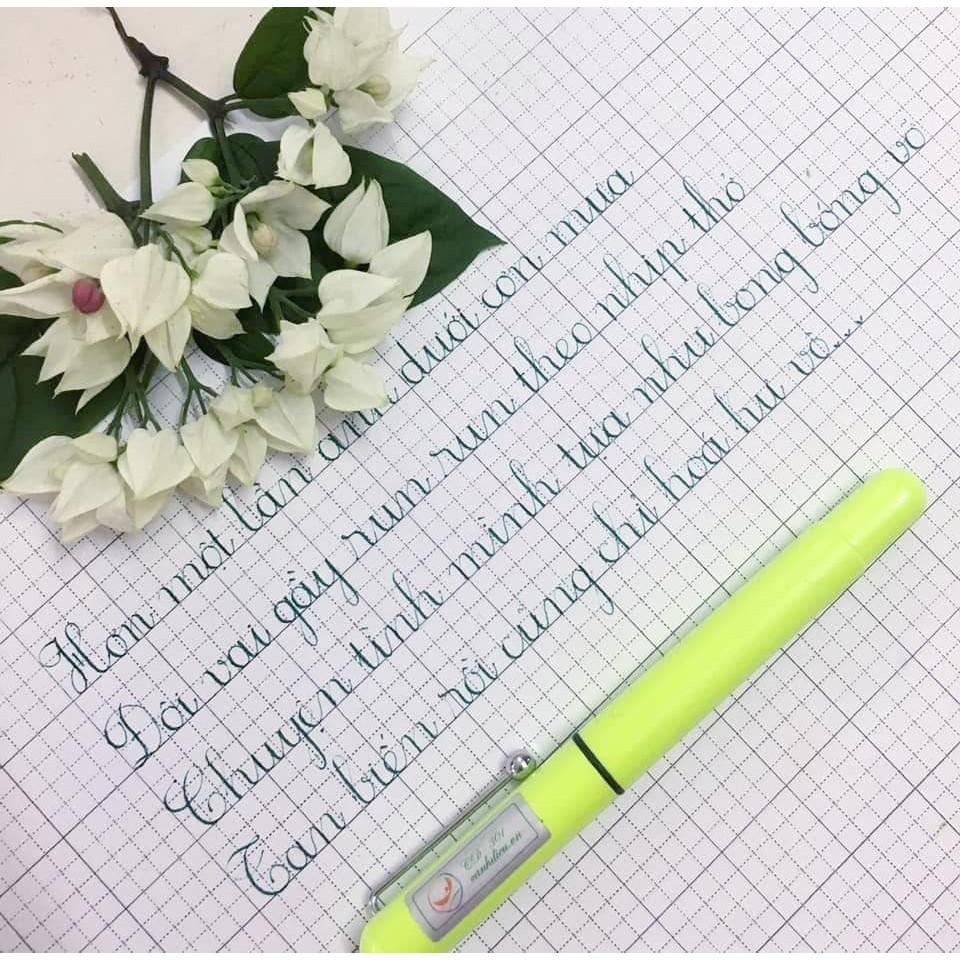 Hôn một lần anh dưới cơn mưa
Đôi vai gầy run run theo nhịp thở
Chuyện tình mình tựa như bong bóng vỡ
Tan biến rồi cũng chỉ hoá hư vô...
301